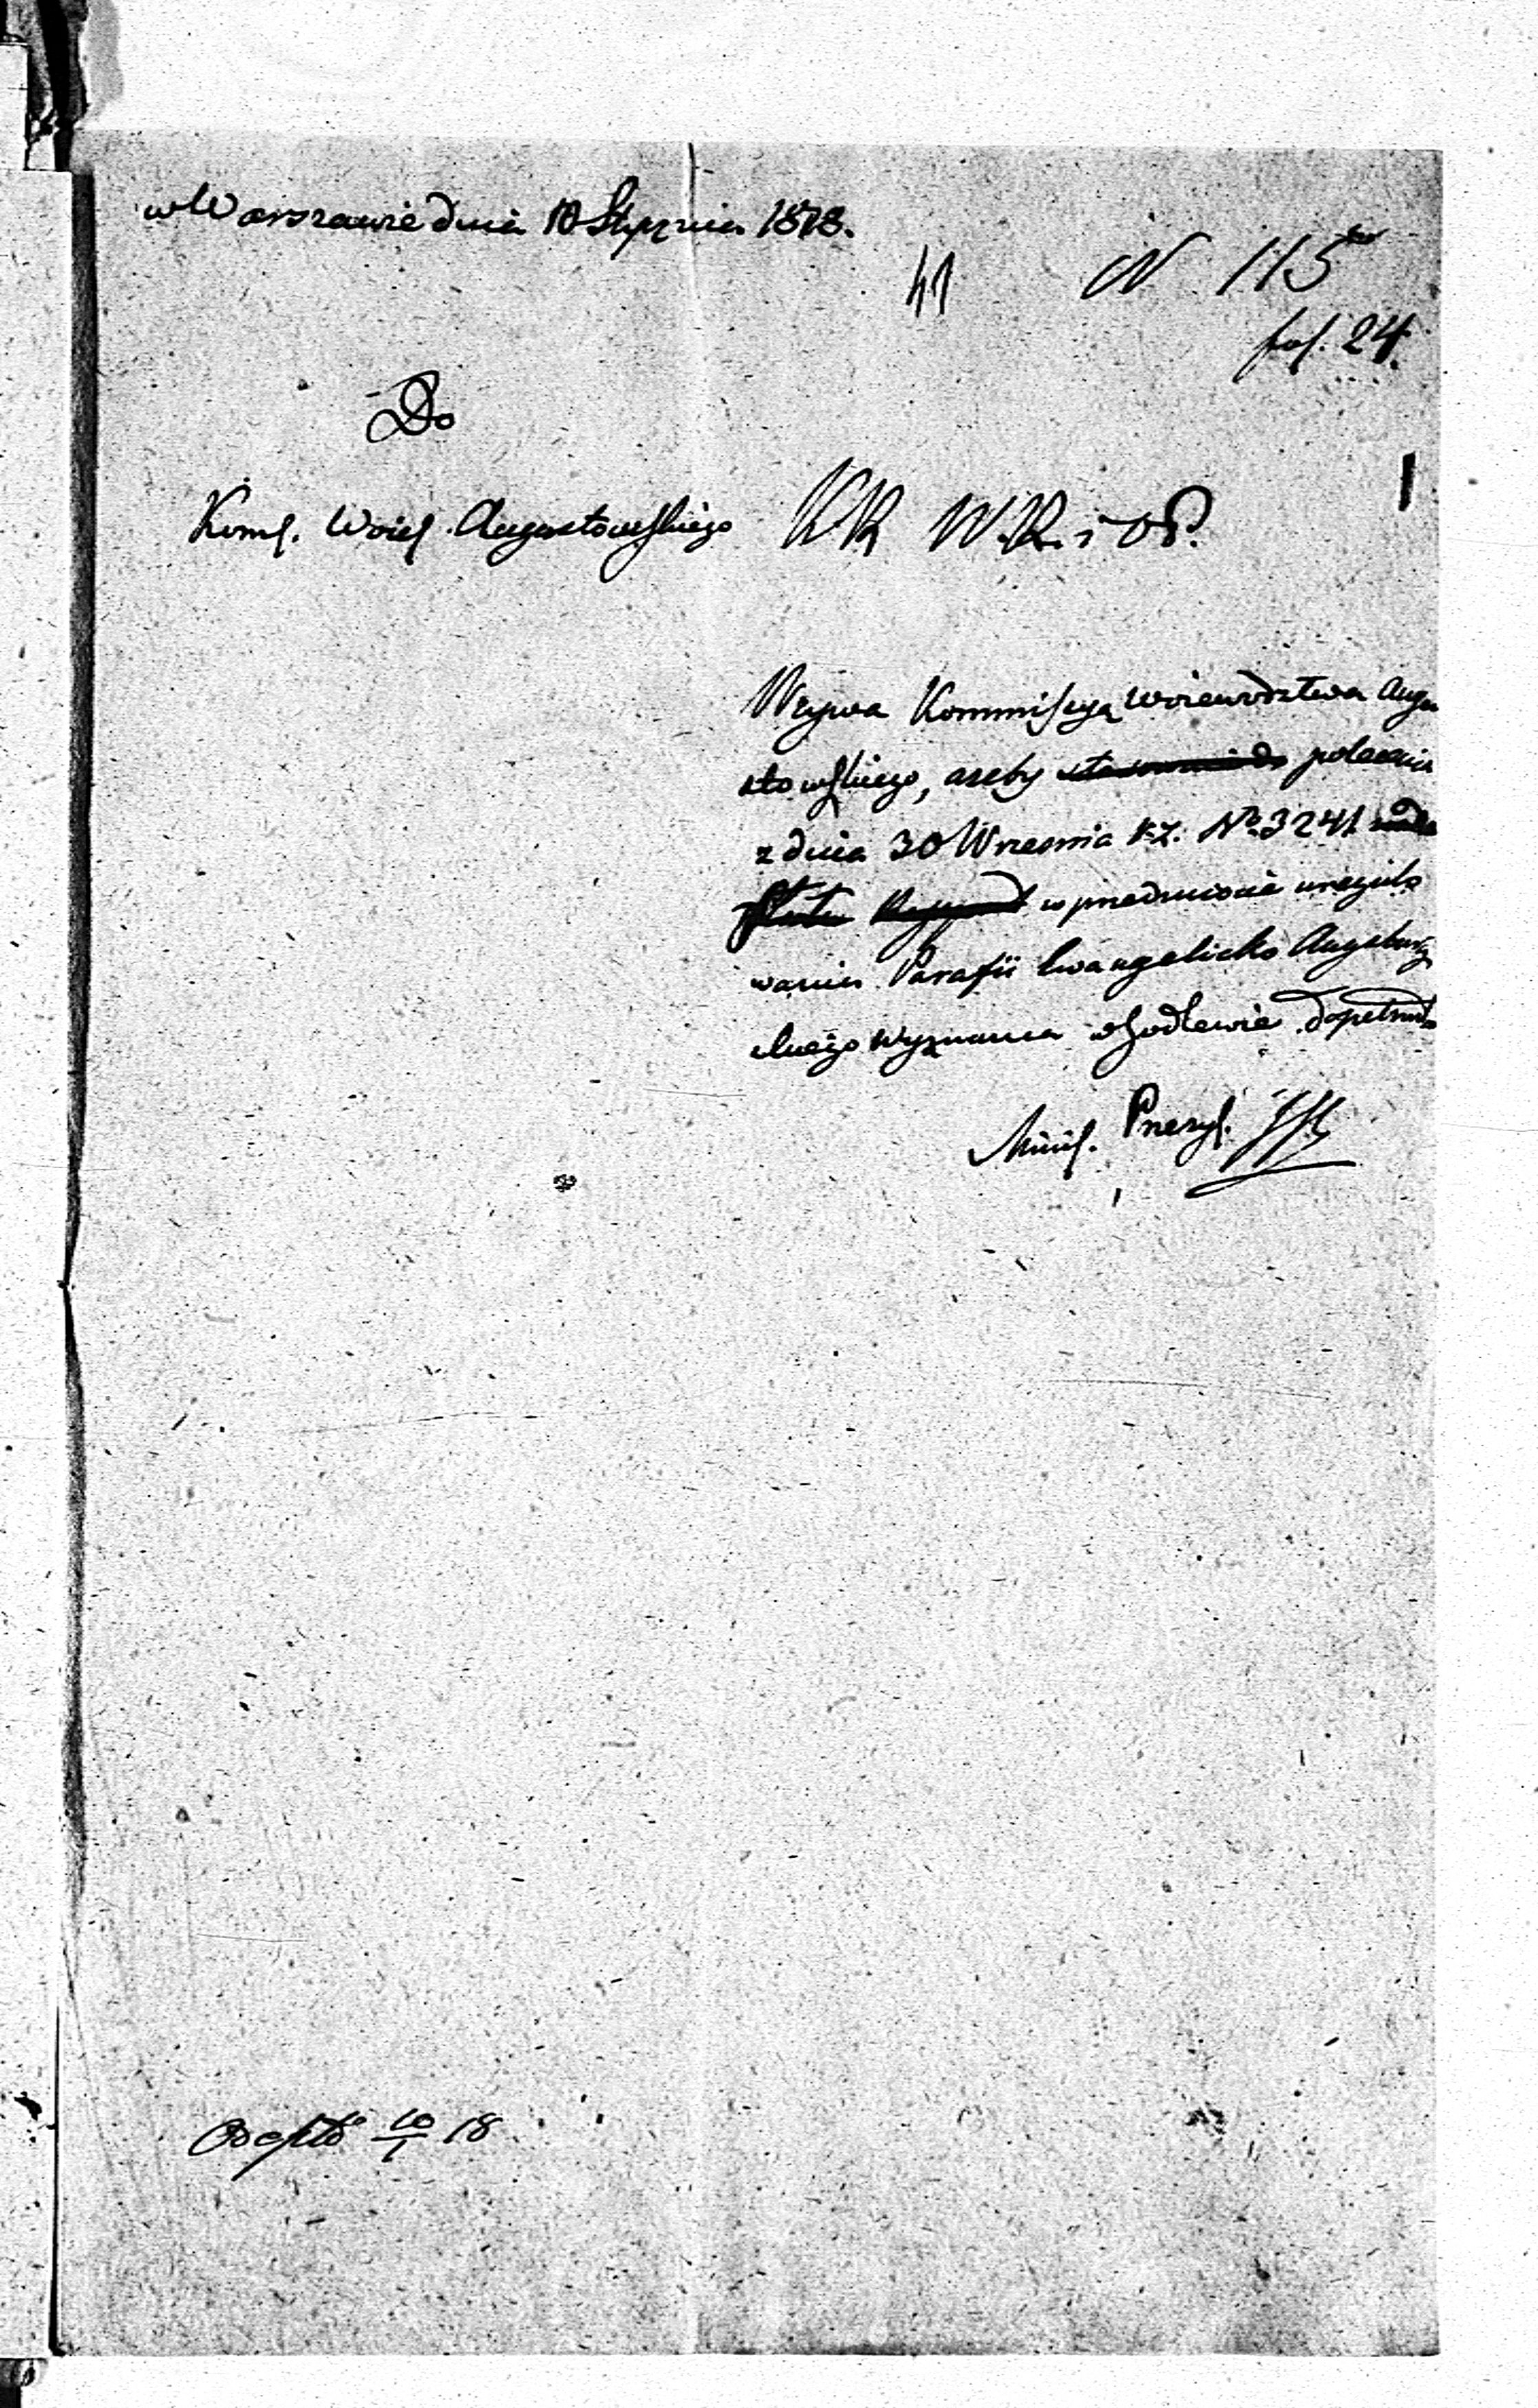 w Warszawie dnia 10 Stycznia 1818.
41
N 115
fol. 24.
Do
Koms. Woies. Augustowskiego
KR W.R. i OP.
Wzywa Kommissyą Woiewodztwa Augu
stowskiego, ażeby stosownie do polecenia
z dnia 30 Wrzesnia r.z. No. 3241
w przedmiocie uregulo
wania Parafii Ewangelicko Augsburg
skiego wyznania w Godlewie dopełniła
Minis. Prezyd.
10/1 18